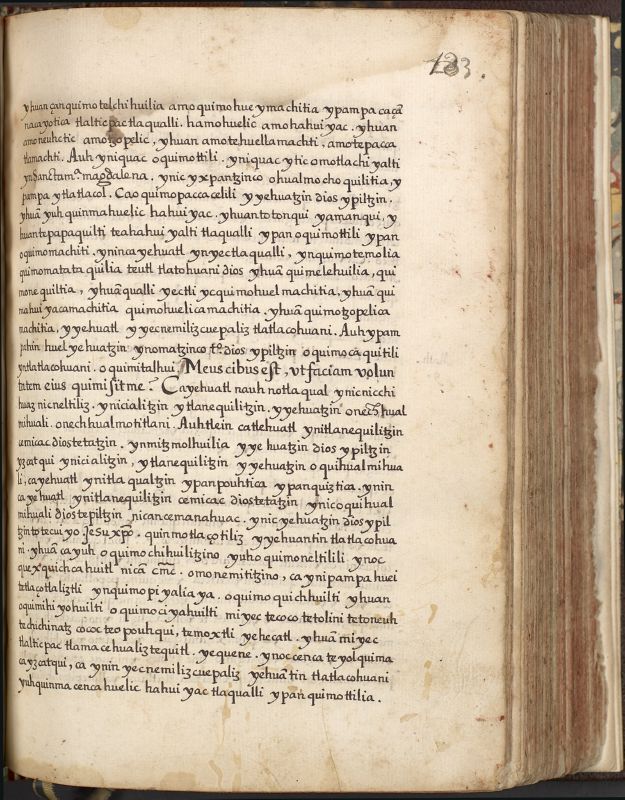 183.
yhuan çan quimo telchi huilia amo quimo hue ymachitia ypampa ca çã
nacayotica tlalticpac tlaqualli. hamohuelic amo hahuiyac. yhuan
amo neuhctic amo tzopelic, yhuan amo tehuellamachti, amo tepacca
tlamachti. Auh yniquac oquimottili. yniquac ytic omotlachi yalti
yn Sanctam.ª magdalena. ynic yxpantzinco ohualmocho quilitia, y
pampa ytlatlacol. Ca oquimopaccacelili yyehuatzin dios ypiltzin.
yhuã yuh quinma huelic hahuiyac. yhuan totonqui yamanqui, y
huan tepapaquilti teahahuiyalti tlaqualli ypan oquimottili ypan
oquimomachiti. ynin ca yehuatl yn yectlaqualli, ynquimotemolia
quimomatataquilia teutl tlatohuani dios yhuã quimelehuilia, qui
monequiltia, yhuã qualli yectli yc quimohuelmachitia, yhuã qui
mahuiyacamachitia quimohuelicamachitia. yhuã quimotzopelica
machitia, yyehuatl yyecnemilizcuepaliz tlatlacohuani. Auh ypam
pahin huel yehuatzin ynomatzinco tº. dios ypiltzin oquimocaquitili
yntlatlacohuani. oquimitalhui Meus cibus est, vt faciam volun
tatem eius qui misit me? Ca yehuatl nauh notlaqual ynicnicchi
huaz nicneltiliz. ynicialitzin ytlanequilitzin. yyehuatzin onechhual
mihuali. onechhualmotitlani. Auh tlein catlehuatl ynitlanequilitzin
cemicac dios tetatzin. ynmitzmolhuilia yyehuatzin dios ypiltzin
yzcatqui ynicialitzin, ytlanequilitzin yyehuatzin oquihualmihua
li, ca yehuatl ynitlaqualtzin ypanpouhtica ypanquiztica. ynin
ca yehuatl ynitlanequilitzin cemicac dios tetatzin ynic oquihual
mihuali dios tepiltzin nican cemanahuac. ynic yehuatzin dios ypil
tzin totecuiyo Jesu xpõ. quinmotlaçotiliz yyehuantin tlatlacohua
ni. yhuã ca yuh oquimochihuilitzino yuh oquimoneltilili ynoc
quexquich cahuitl nicã cmc. omonemitizino, ca ynipampa huei
tetlaçotlaliztli ynquimopiyaliaya. oquimoquichhuilti yhuan
oquimihiyohuilti oquimociyahuilti miyec tecoco tetolini tetoneuh
techichinatz cococ teopouhqui, temoxtli yehecatl. yhuã miyec
tlalticpac tlamacehualiztequitl. yequene. ynoc cenca teyolquima
ca yzcatqui, ca ynin yecnemilizcuepaliz yehuãtin tlatlacohuani
yuhquinma cenca huelic hahuiyac tlaqualli ypan quimottilia.